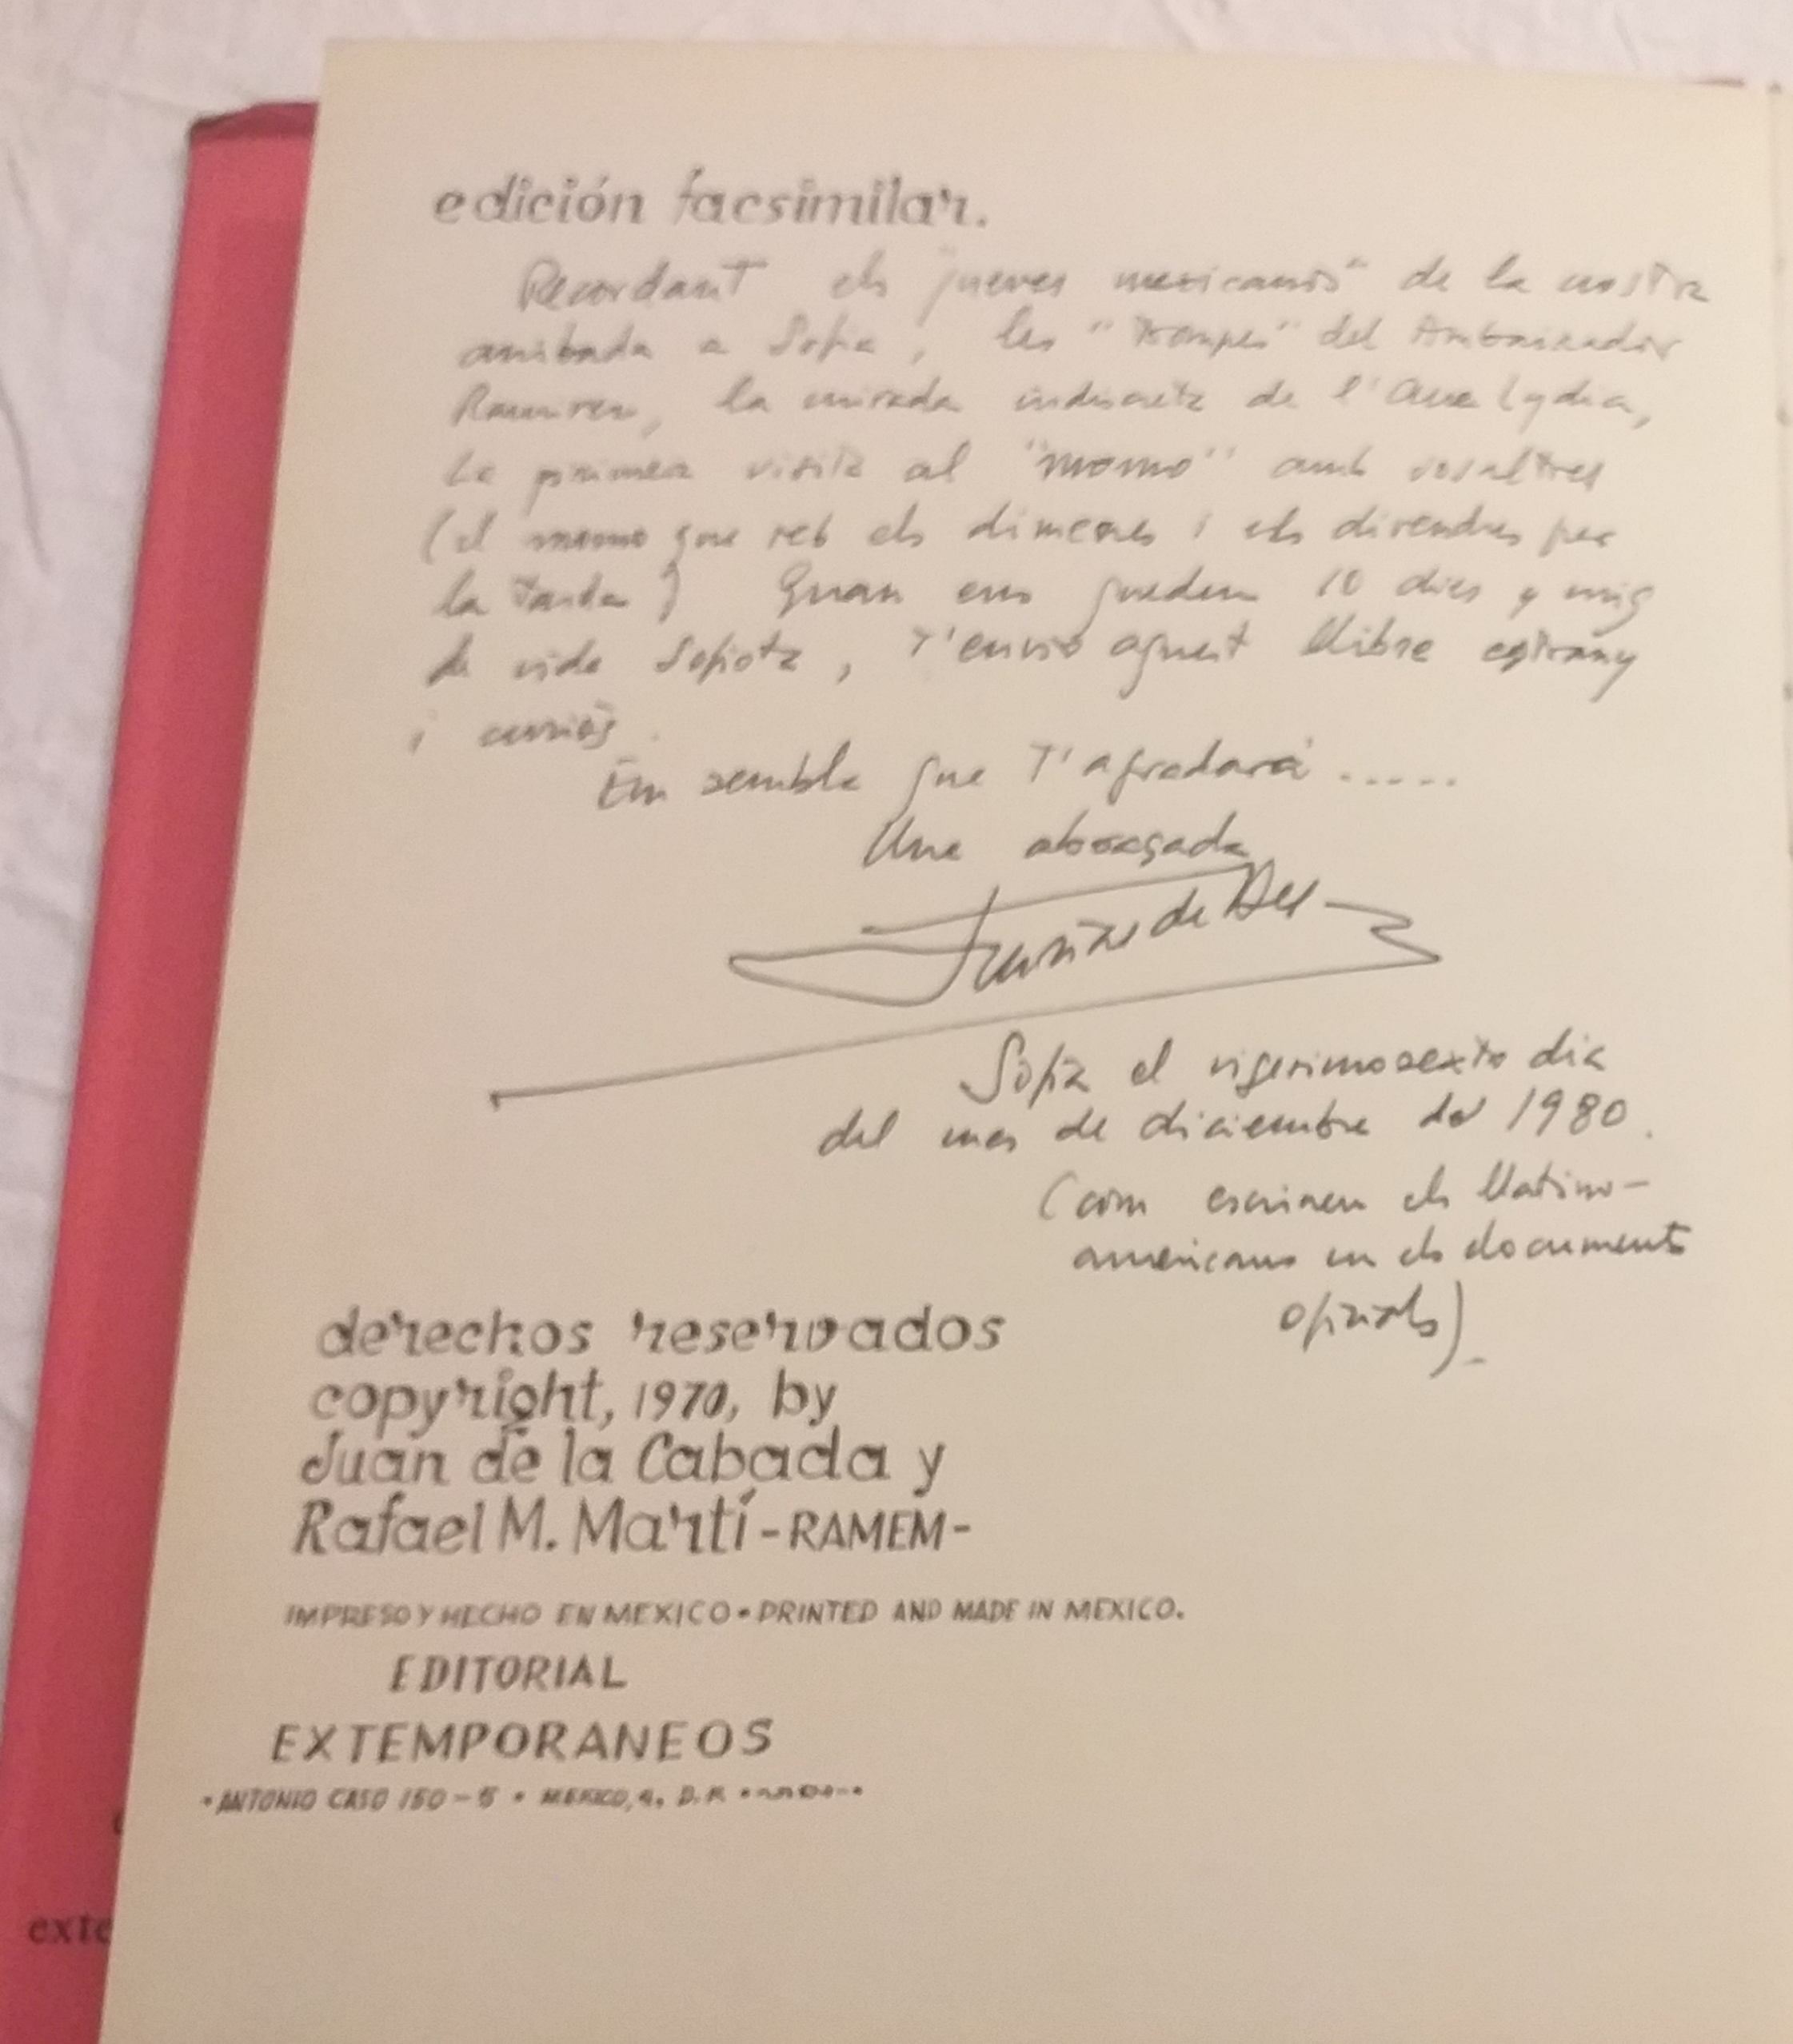 edición facsimilar.
Recordant els "jueves mexicanos" de la nostra
arribada a Sofia, les "trompes" del Ambaixador
Ramirez, la mirada indiscreta de l'Ana Lydia,
la primera visita al "momo" amb vosaltres
(el momo que reb els dimecres i els divendres per
la tarda) Quan ens queden 10 dies y mig
de vida Sofiota, t'envio aquest llibre estrany
i curiós.
Em sembla que t'agradarà.....
Una abraçada
de
Sofia el vigesimosexto dia
del mes de diciembre de 1980.
(com escriuen els llatino-
americans en els documents
oficials).
derechos reservados
copyright, 1970, by
Juan de la Cabada y
Rafael M. Martí -RAMEM-
IMPRESO Y HECHO EN MEXICO • PRINTED AND MADE IN MEXICO.
EDITORIAL
EXTEMPORANEOS
• ANTONIO CASO 150-5 • MEXICO, 4, D.F.
exte